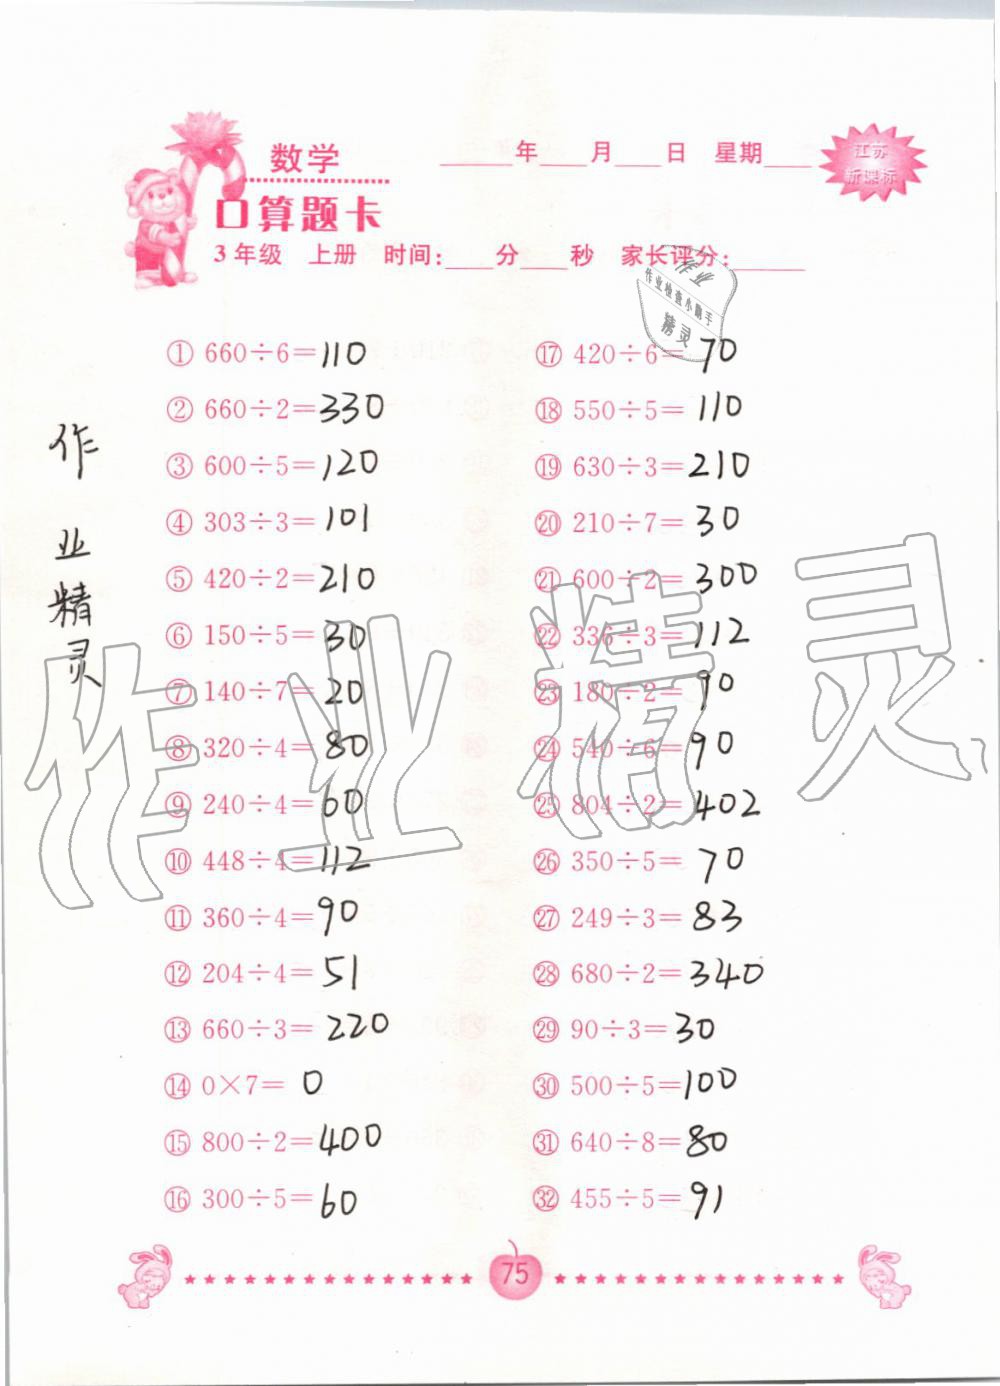 数学
____年___月___日 星期___
江苏
新课标
口算题卡
3年级 上册 时间:___分___秒 家长评分:____
作业
作业检查小助手
精灵
① 660÷6=110
② 660÷2=330
③ 600÷5=120
④ 303÷3=101
⑤ 420÷2=210
⑥ 150÷5=30
⑦ 140÷7=20
⑧ 320÷4=80
⑨ 240÷4=60
⑩ 448÷4=112
⑪ 360÷4=90
⑫ 204÷4=51
⑬ 660÷3=220
⑭ 0×7=0
⑮ 800÷2=400
⑯ 300÷5=60
⑰ 420÷6=70
⑱ 550÷5=110
⑲ 630÷3=210
⑳ 210÷7=30
㉑ 600÷2=300
㉒ 336÷3=112
㉓ 180÷2=90
㉔ 540÷6=90
㉕ 804÷2=402
㉖ 350÷5=70
㉗ 249÷3=83
㉘ 680÷2=340
㉙ 90÷3=30
㉚ 500÷5=100
㉛ 640÷8=80
㉜ 455÷5=91
作
业
精
灵
作业精灵
75